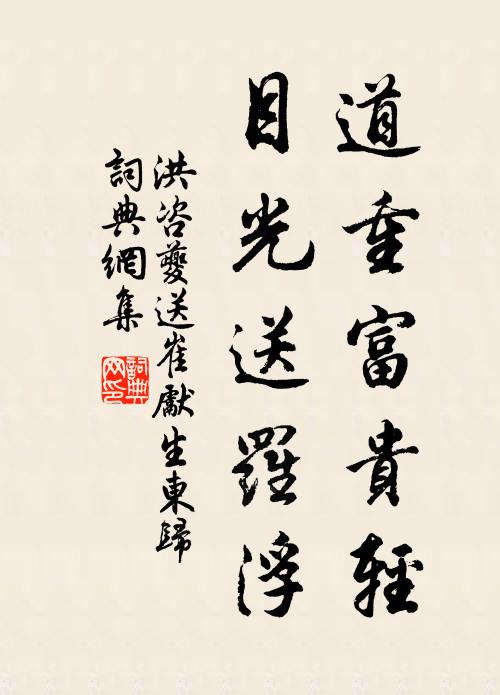 道重富貴輕
目光送羅浮
洪咨夔送崔獻生東歸
詞典網集
詞典网印